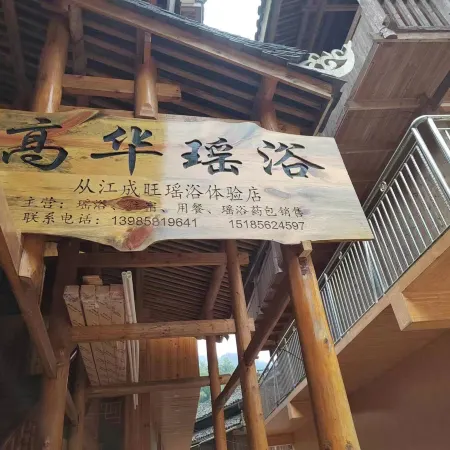 高华瑶浴
从江成旺瑶浴体验店
主营：瑶浴、住宿、用餐、瑶浴药包销售
联系电话：13985819641 15185624597